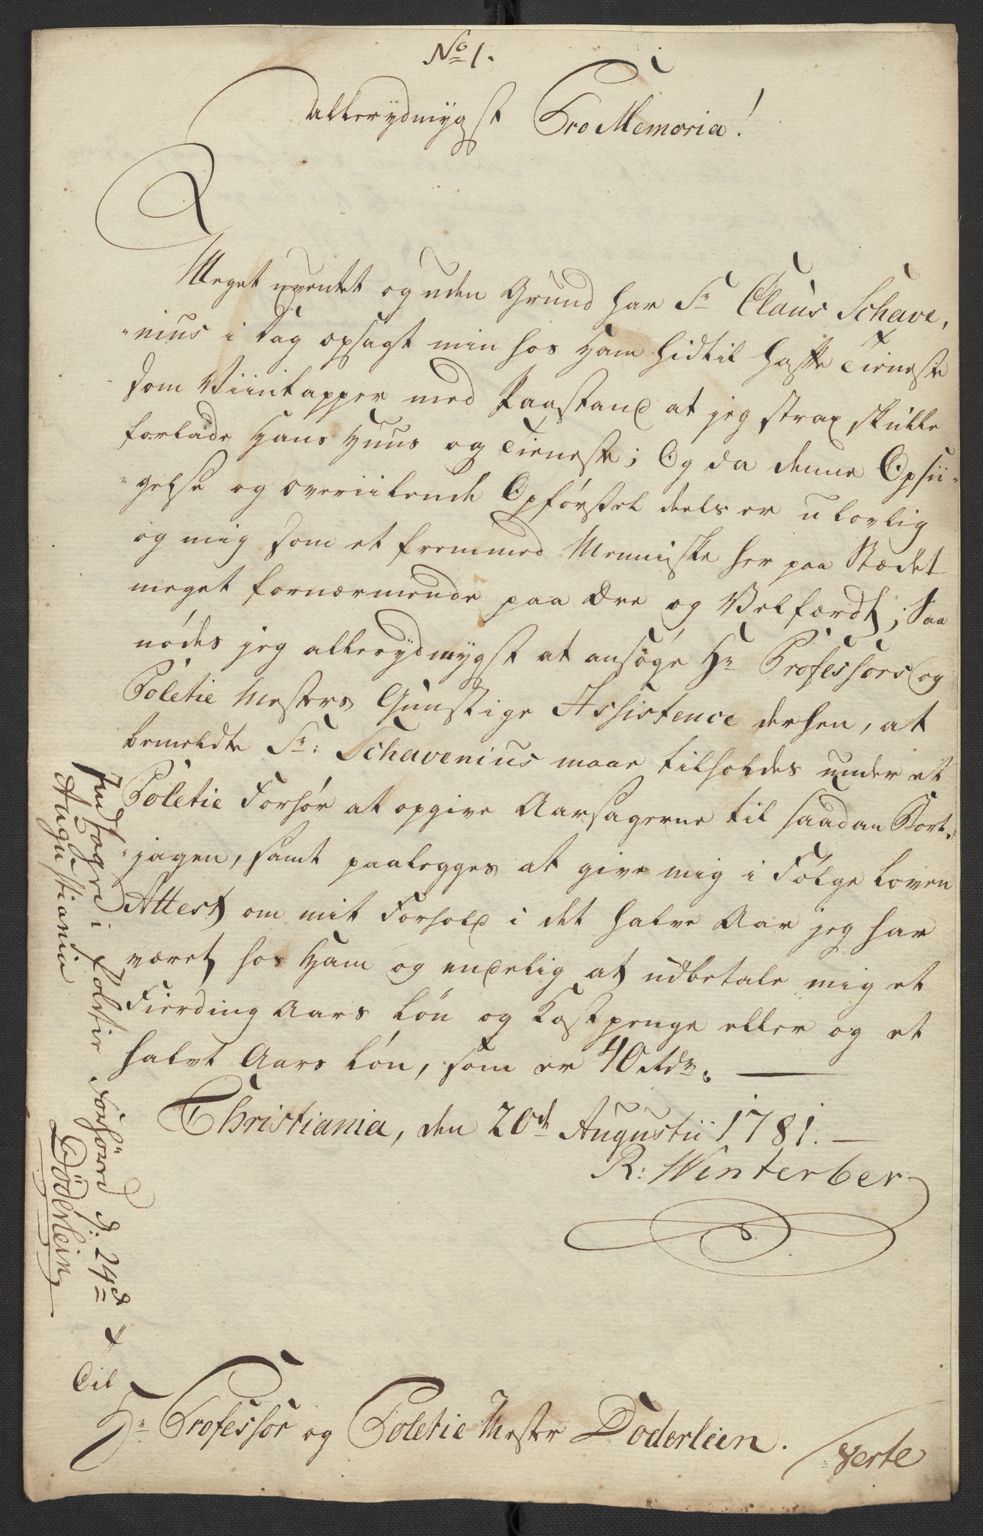 No 1.
allerydmygst Pro Memoria!
Meget uventet og uden Grund har Sr Claus Schave,
"nius i Dag opsagt min hos Ham hidtil hafte Tieneste
som Viintapper med Paastand at jeg strax skulle
forlade Hans Huus og Tieneste; Og da denne Opsii"
"gelse og overiilende Opførsel deels er ulovlig
og mig som et fremmed Menniske her paa Stædet
meget fornærmende paa Ære og Velfærdt; Saa
nødes jeg allerydmygst at ansøge Hr Professors og
Politie Mesters Gunstige Assistence derhen, at
bemeldte Sr: Schavenius maae tilholdes under et
Politie Forhør at opgive Aarsagerne til saadan Bort"
"jagen, samt paalegges at give mig i Følge Loven
Attest om mit Forhold i det halve Aar jeg har
været hos Ham og endelig at udbetale mig et
Fierding Aars Løn og Kostpenge eller og et
halvt Aars Løn, som er 40 Rdr.
Christiania, den 20de Augustii 1781.
R: Winterber
Til
Hr Professor og Politie Mester Døderlein.
Verte
Indtages i Politie Forhøret d: 24de
Augusti
Døderlein